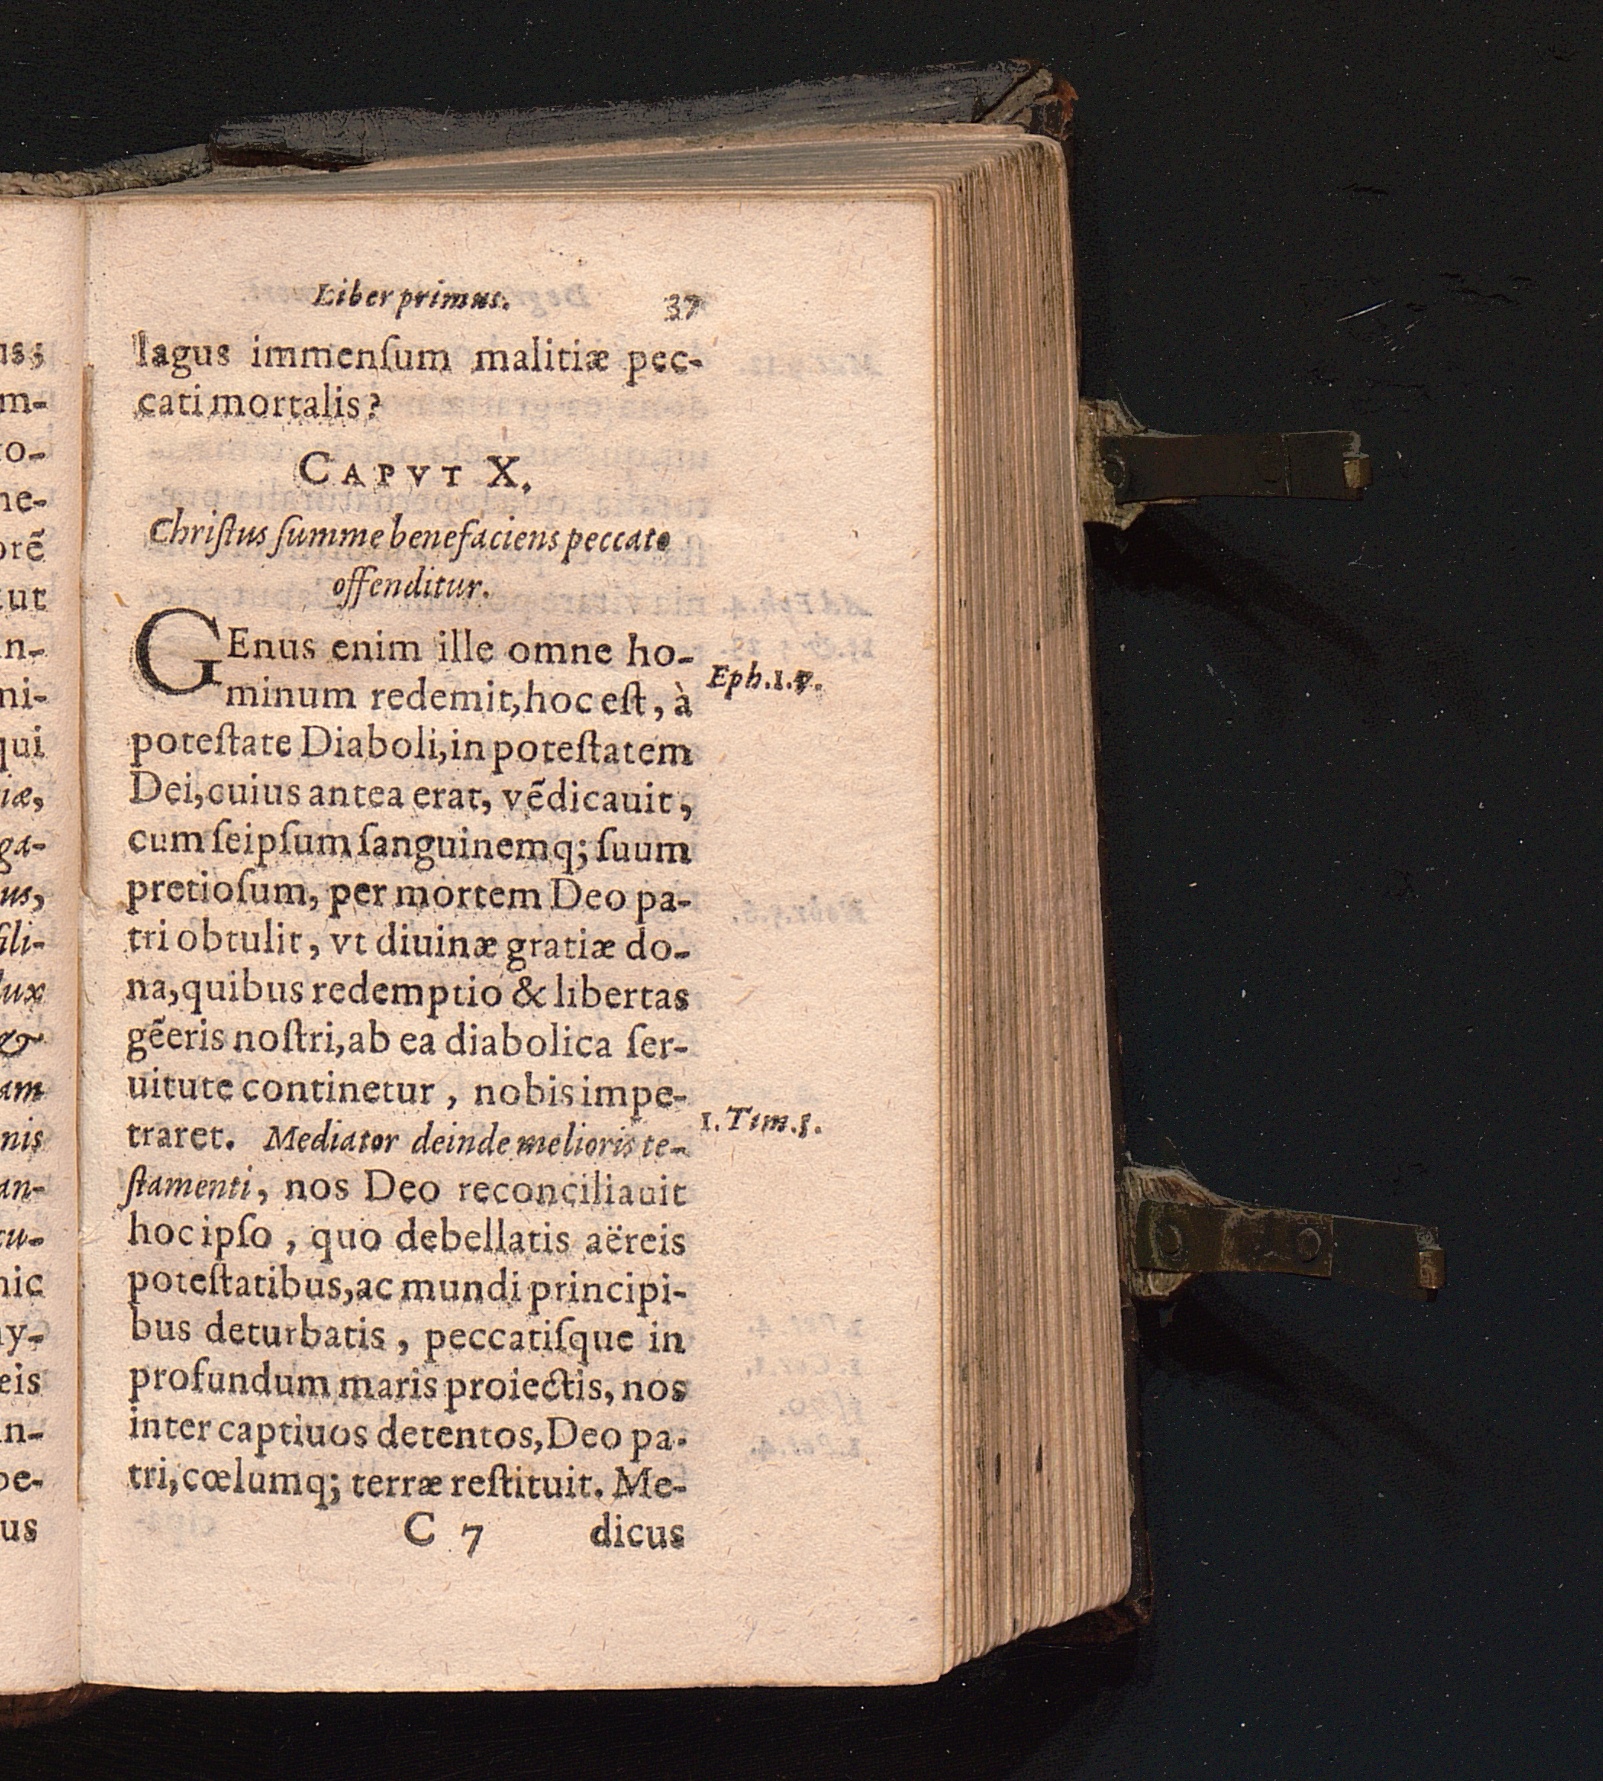 Liber primus. 37
lagus immenſum malitiæ pec-
cati mortalis?
CAPVT X.
Chriſtus ſumme benefaciens peccato
offenditur.
GEnus enim ille omne ho-
minum redemit, hoc eſt, à
Eph.1.7.
poteſtate Diaboli, in poteſtatem
Dei, cuius antea erat, vẽdicauit,
cum ſeipſum ſanguinemq; ſuum
pretioſum, per mortem Deo pa-
tri obtulit, vt diuinæ gratiæ do-
na, quibus redemptio & libertas
gẽeris noſtri, ab ea diabolica ſer-
uitute continetur, nobis impe-
traret. Mediator deinde melioris te-
1. Tim.
ſtamenti, nos Deo reconciliauit
hoc ipſo, quo debellatis aëreis
poteſtatibus, ac mundi principi-
bus deturbatis, peccatiſque in
profundum maris proiectis, nos
inter captiuos detentos, Deo pa-
tri, cœlumq; terræ reſtituit. Me-
C 7 dicus